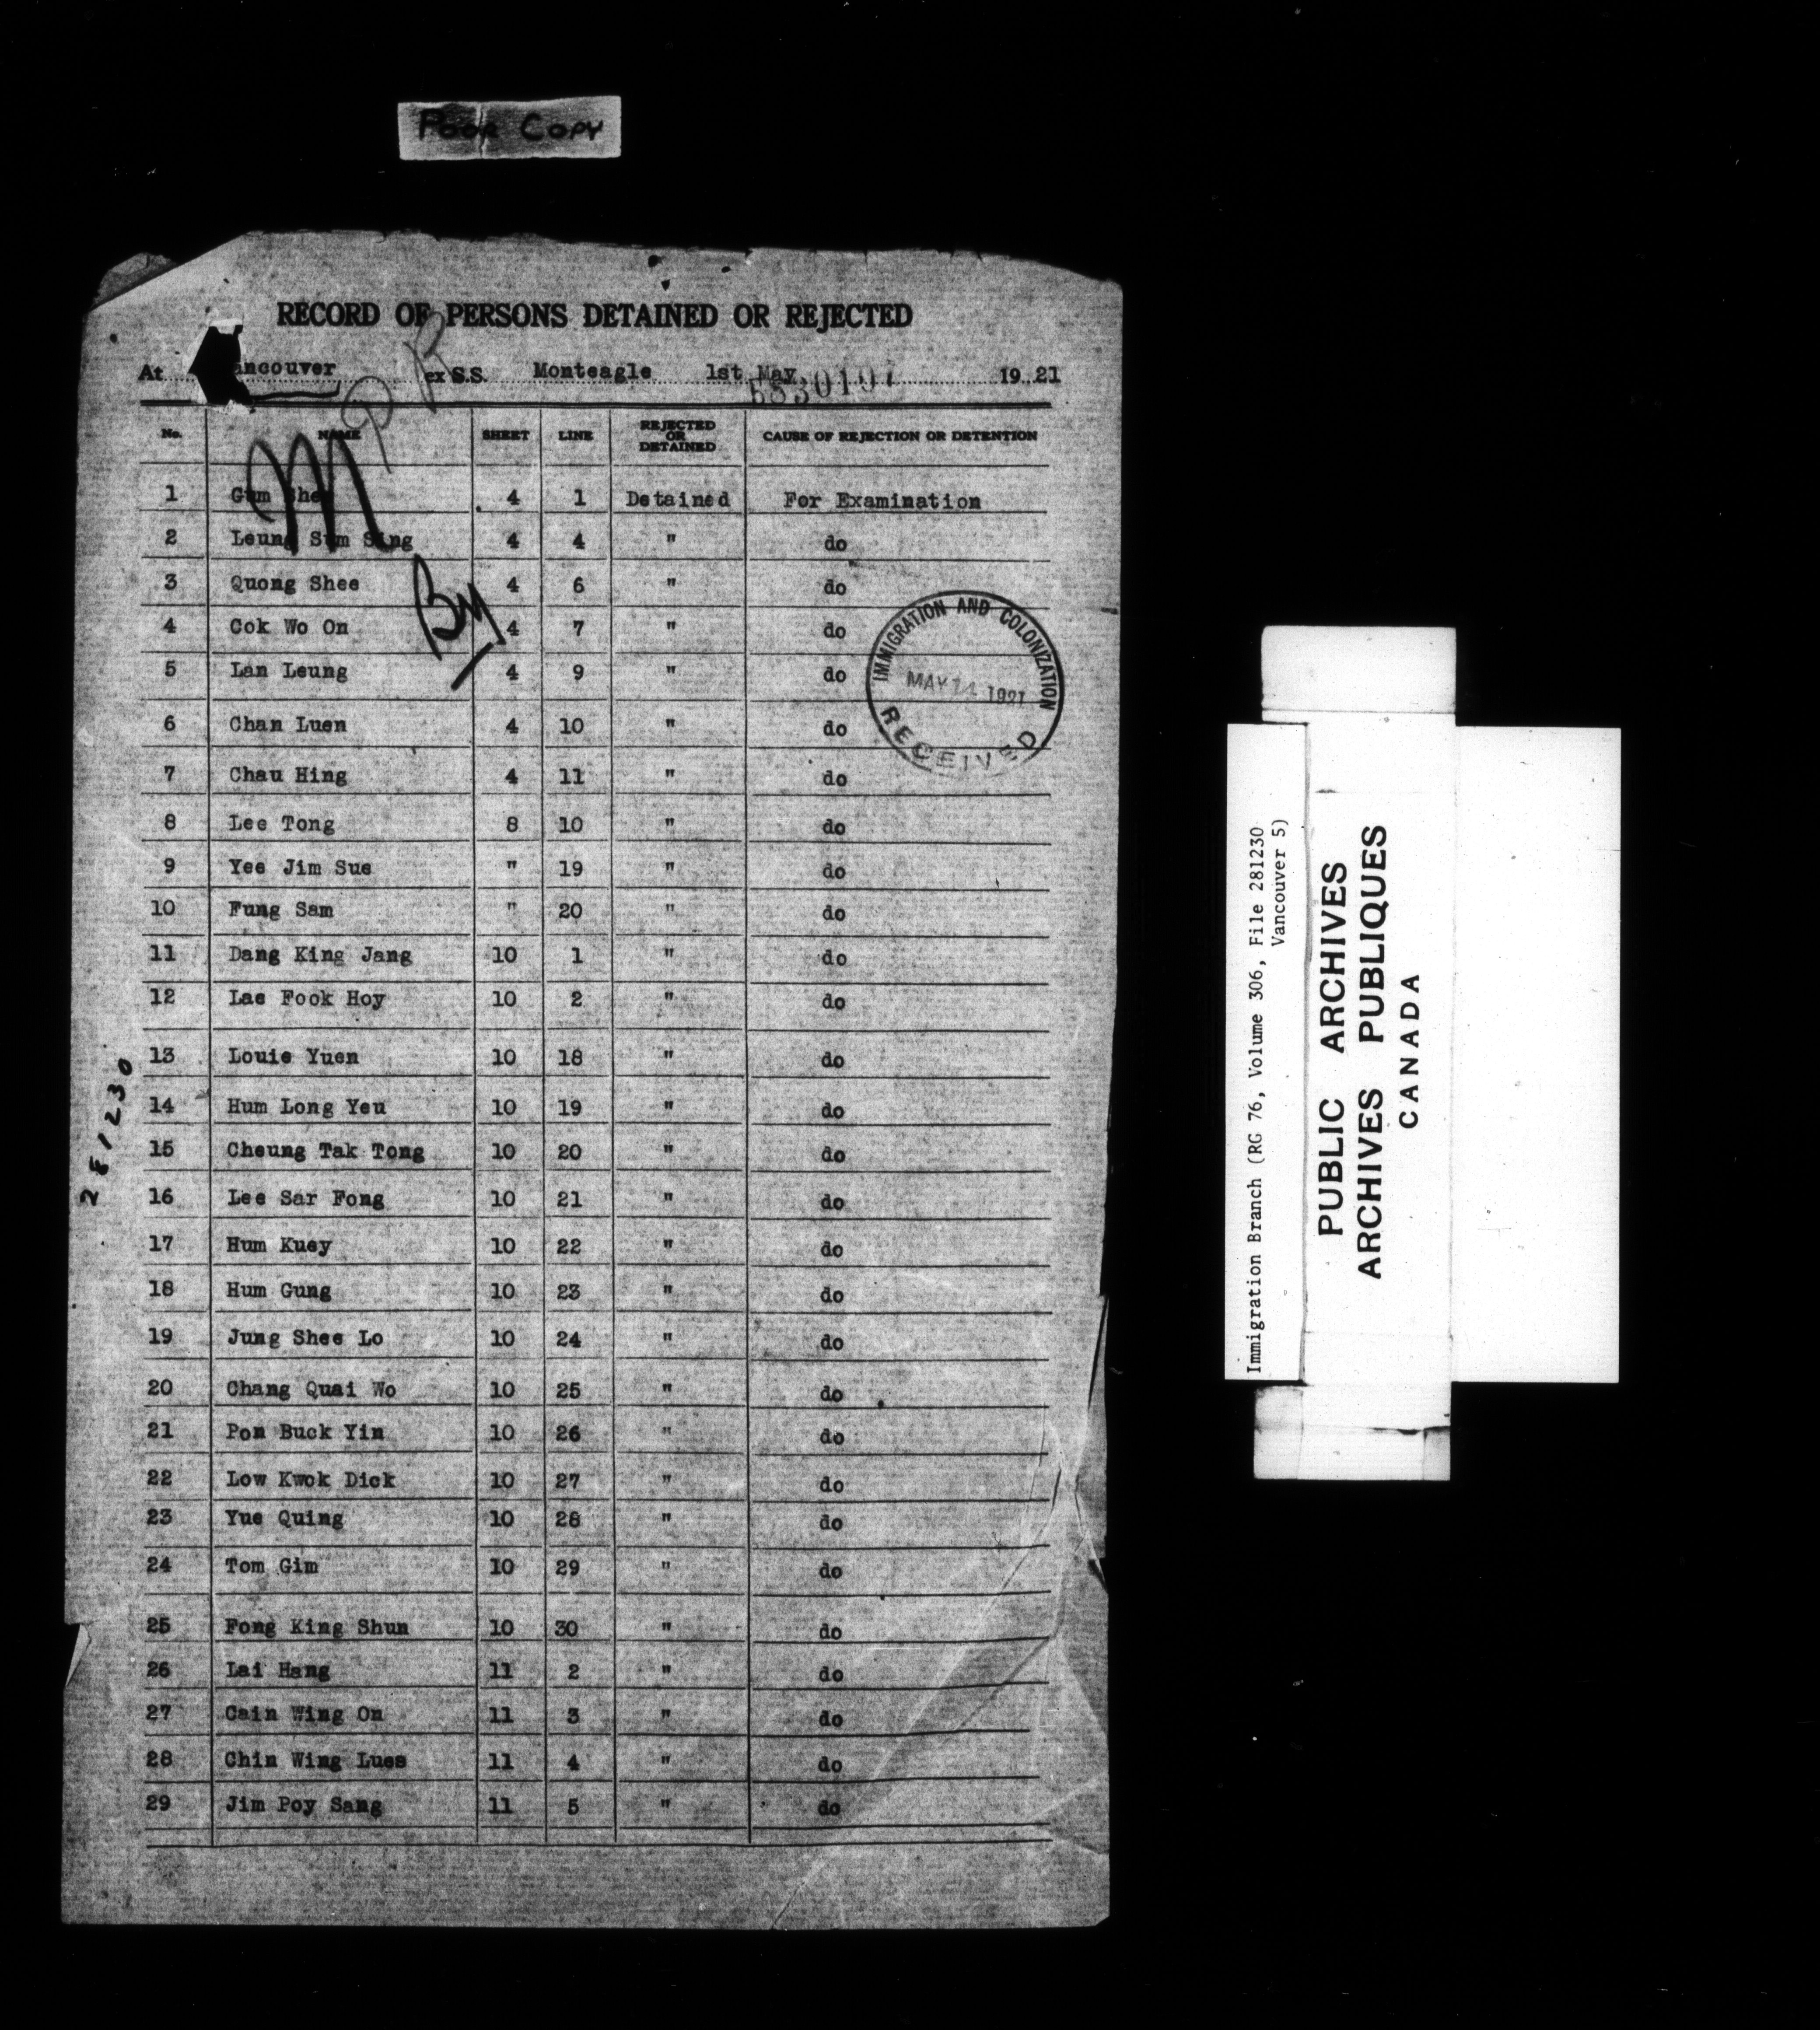 POOR COPY
RECORD OF PERSONS DETAINED OR REJECTED
At ancouver ex S.S. Monteagle 1st May 1921
No. NAME SHEET LINE REJECTED OR DETAINED CAUSE OF REJECTION OR DETENTION
1 Gum Shee 4 1 Detained For Examination
2 Leung Sum Sing 4 4 " do
3 Quong Shee 4 6 " do
4 Cok Wo On 4 7 " do
5 Lan Leung 4 9 " do
6 Chan Luen 4 10 " do
7 Chau Hing 4 11 " do
8 Lee Tong 8 10 " do
9 Yee Jim Sue " 19 " do
10 Fung Sam " 20 " do
11 Dang King Jang 10 1 " do
12 Lae Fook Hoy 10 2 " do
13 Louie Yuen 10 18 " do
14 Hum Long Yeu 10 19 " do
15 Cheung Tak Tong 10 20 " do
16 Lee Sar Fong 10 21 " do
17 Hum Kuey 10 22 " do
18 Hum Gung 10 23 " do
19 Jung Shee Lo 10 24 " do
20 Chang Quai Wo 10 25 " do
21 Pon Buck Yin 10 26 " do
22 Low Kwok Dick 10 27 " do
23 Yue Quing 10 28 " do
24 Tom Gim 10 29 " do
25 Fong King Shun 10 30 " do
26 Lai Hang 11 2 " do
27 Cain Wing On 11 3 " do
28 Chin Wing Lues 11 4 " do
29 Jim Poy Sang 11 5 " do
IMMIGRATION AND COLONIZATION
MAY 14 1921
RECEIVED
281230
Immigration Branch (RG 76, Volume 306, File 281230
Vancouver 5)
PUBLIC ARCHIVES
ARCHIVES PUBLIQUES
CANADA